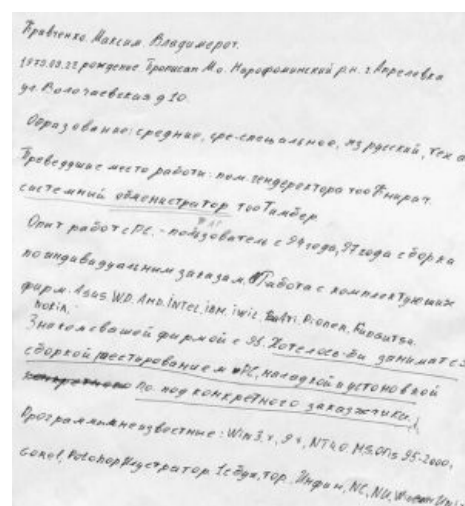 Кравченко Максим Владимерот.
1973.03.22 рождение Прописан Мо. Нарофоминский р.н. г Апрелевка
ул. Волочаевская д 10.
Образование: средние, сре-специальное, яз русский, тех
Преведущие место работы: пом. гендеректора тоо
системный обменистратор тоо Тамбер
Опыт работ с PC. - пользователь с 94 года, 97 года сборка
по индивидуальным заказам. Работа с комплектующих
фирм: Asus, W.D. AMD. iNTEL, iBM, iwil,
Знаком с вашей фирмой с 95. Хотелось-бы заниматся
сборкой тестированием PC, наладкой и устоновкой
по под конкретного заказчика.
Программы мне известные: Win 3.x, 9x, NT4.0, M.S. Offis 95-2000,
1с Бух, Тор, NC, NU,